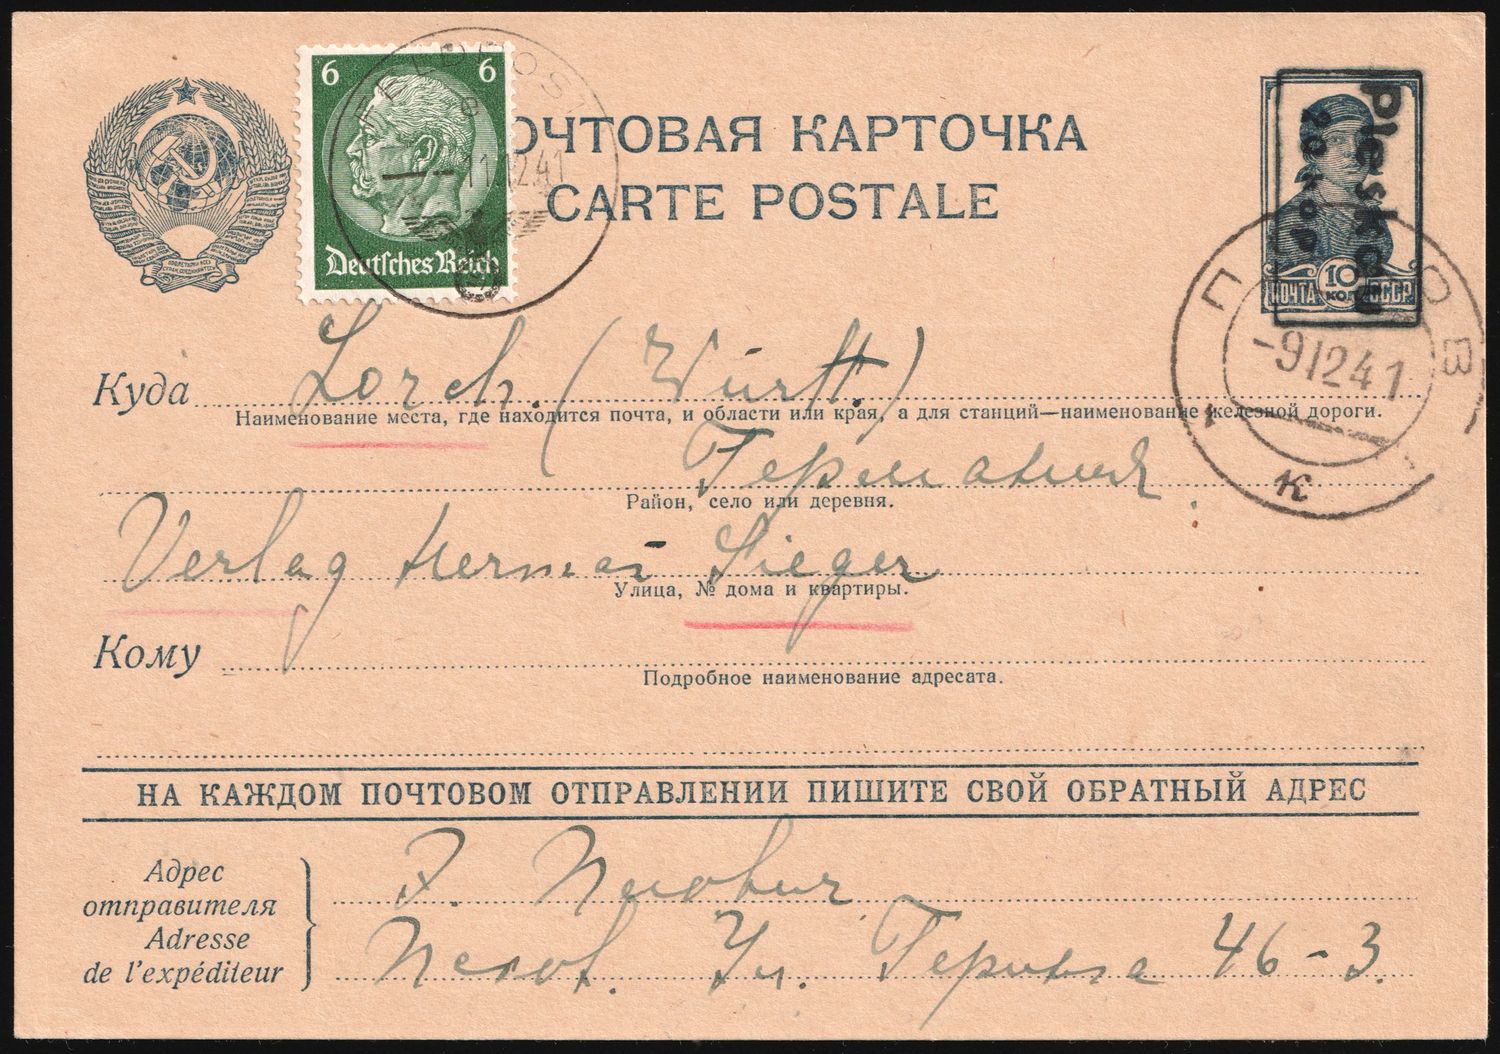 6 6
Deutsches Reich
FELDPOST
11.12.41
ОЧТОВАЯ КАРТОЧКА
CARTE POSTALE
Pleskau
20 kop
10
ПОЧТА КОП СССР
-9 12 41
к
Куда Lorch. (Württ.)
Наименование места, где находится почта, и области или края, а для станций—наименование железной дороги.
Германия.
Район, село или деревня.
Verlag Herman Sieger
Улица, № дома и квартиры.
Кому
Подробное наименование адресата.
НА КАЖДОМ ПОЧТОВОМ ОТПРАВЛЕНИИ ПИШИТЕ СВОЙ ОБРАТНЫЙ АДРЕС
Адрес
отправителя
Adresse
de l'expéditeur
Ул. 46-3.